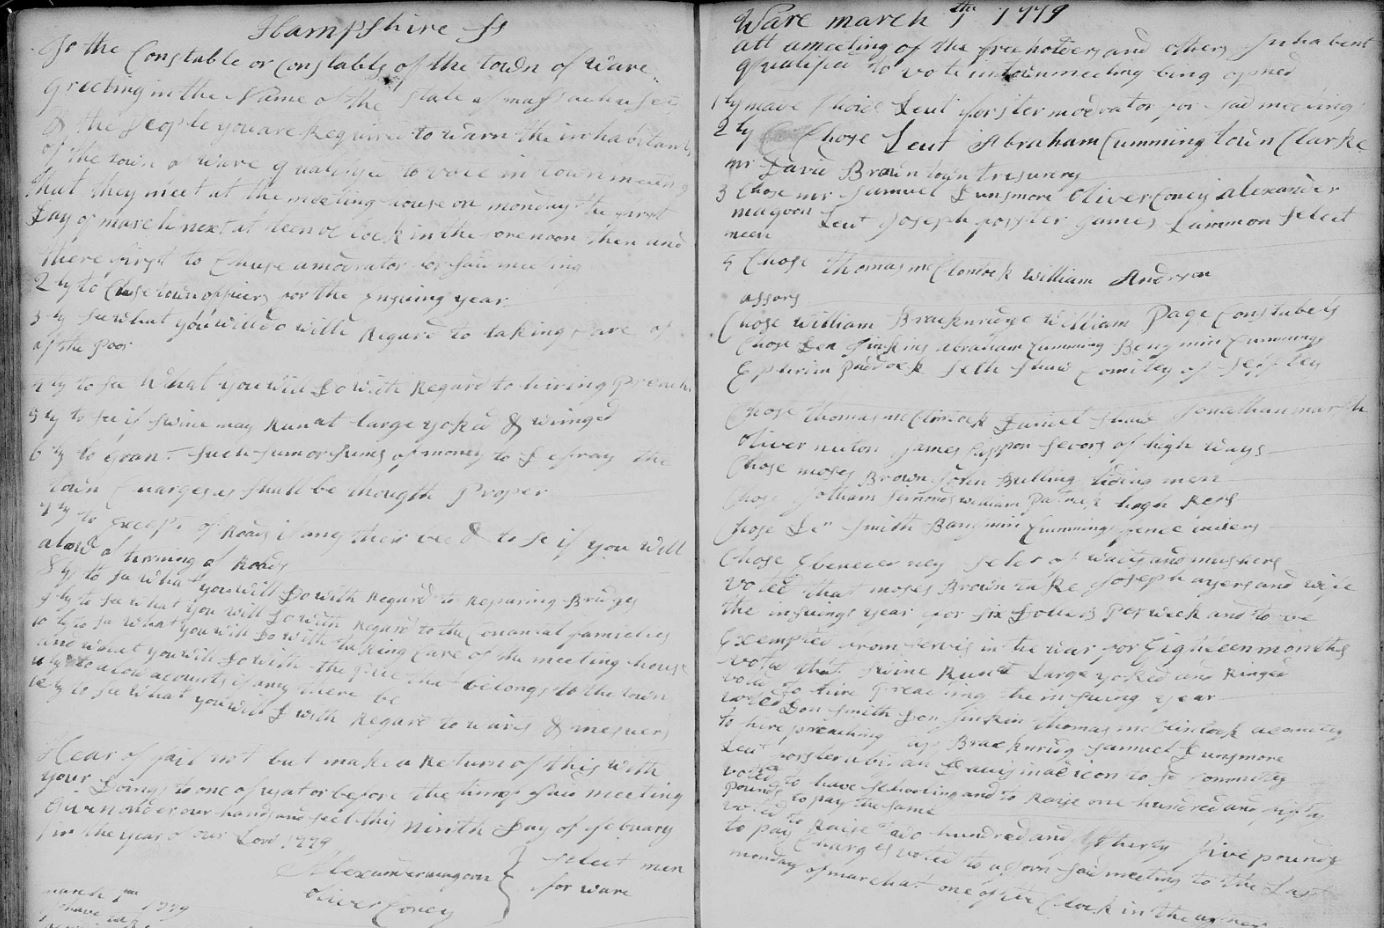 Hampshire ss
To the Constable or Constables of the town of Ware
Greeting in the Name of the State of massachusets
& the People you are Required to warn the inhabitants
of the town of ware qualifyd to vote in townmeeting
that they meet at the meeting house on monday the first
Day of march next at teen oclock in the forenoon then and
there first to Chuse a moderator for said meeting
2 ly to Chuse town officers for the ensuing year
3 ly see what you will do with Regard to taking Care of
of the Poor
4 ly to se What you will Do with Regard to hiring Preach
5 ly to se if swine may Run at large yoked & ringed
6 ly to Grant such sum or sums of money to Defray the
town Charges as shall be thougth Proper
7 ly to Except of Roads if any their be & to se if you will
alow of turning of Roads
8 ly to se what you will Do with Regard to Repairing Bridges
9 ly to se what you will Do with Regard to the Continental families
10 ly to se what you will Do with taking Care of the meeting house
and what you will Do with the that belongs to the town
11 ly to alow acounts if any there be
12 ly to se what you will D with Regard to waits & mesuers
Hear of fail not but make a Return of this with
your Doings to one of us at or before the time of said meeting
Given under our hands and seel this Ninth Day of febuary
in the year of our Lord 1779
Alexander magoon
Oliver Coney
select men
for ware
march 1779
Ware march 1779
att a meeting of the freeholders and others Inhabent
qualified to vote in town meeting being opned
1 ly made Choice Leut forster moderator for said meeting
2 ly Chose Leut Abraham Cumming town Clarke
mr David Brown town tresurery
3 Chose mr Samuel Dunsmore Oliver Coney alexander
magoon Leut Joseph forster James Lammon select
meen
4 Chose thomas mcClontock William Andrson
assors
Chose William Brackenridge William Page Constubels
Chose Den Jinkins abraham Cumming Benjmin Cummings
Ephrim Paddock Seth Shaw Comitey of
Chose thomas mcClontock Daniel Shaw Jonathan marsh
Oliver nuton James of high ways
Chose moses Brown John Bulling tiding men
Chose Jotham Simonds william Patrick hogh Refs
Chose Den Smith Banjmin Cummings fence vuers
Chose Ebenezer ney seler of waits and musuers
Voted that moses Brown take Joseph ayers and wife
the insuing year for six Dollers Per week and to be
Exempted from servis in the war for Eighteen months
voted that swine Run at Large yoked and Ringed
voted to hire Preaching the insuing year
voted Don Smith Don Jinkin thomas mcClintock a comitey
to hire preaching Brackinrig Samuel Dunsmore
Leut forster to se Committey
voted to have schooling and to Raise one hundred and eighty
pounds to pay the same
voted to Raise two hundred and thirty five pounds
to pay Charges voted to ajorn said meeting to the Last
monday of march at one of the Clock in the